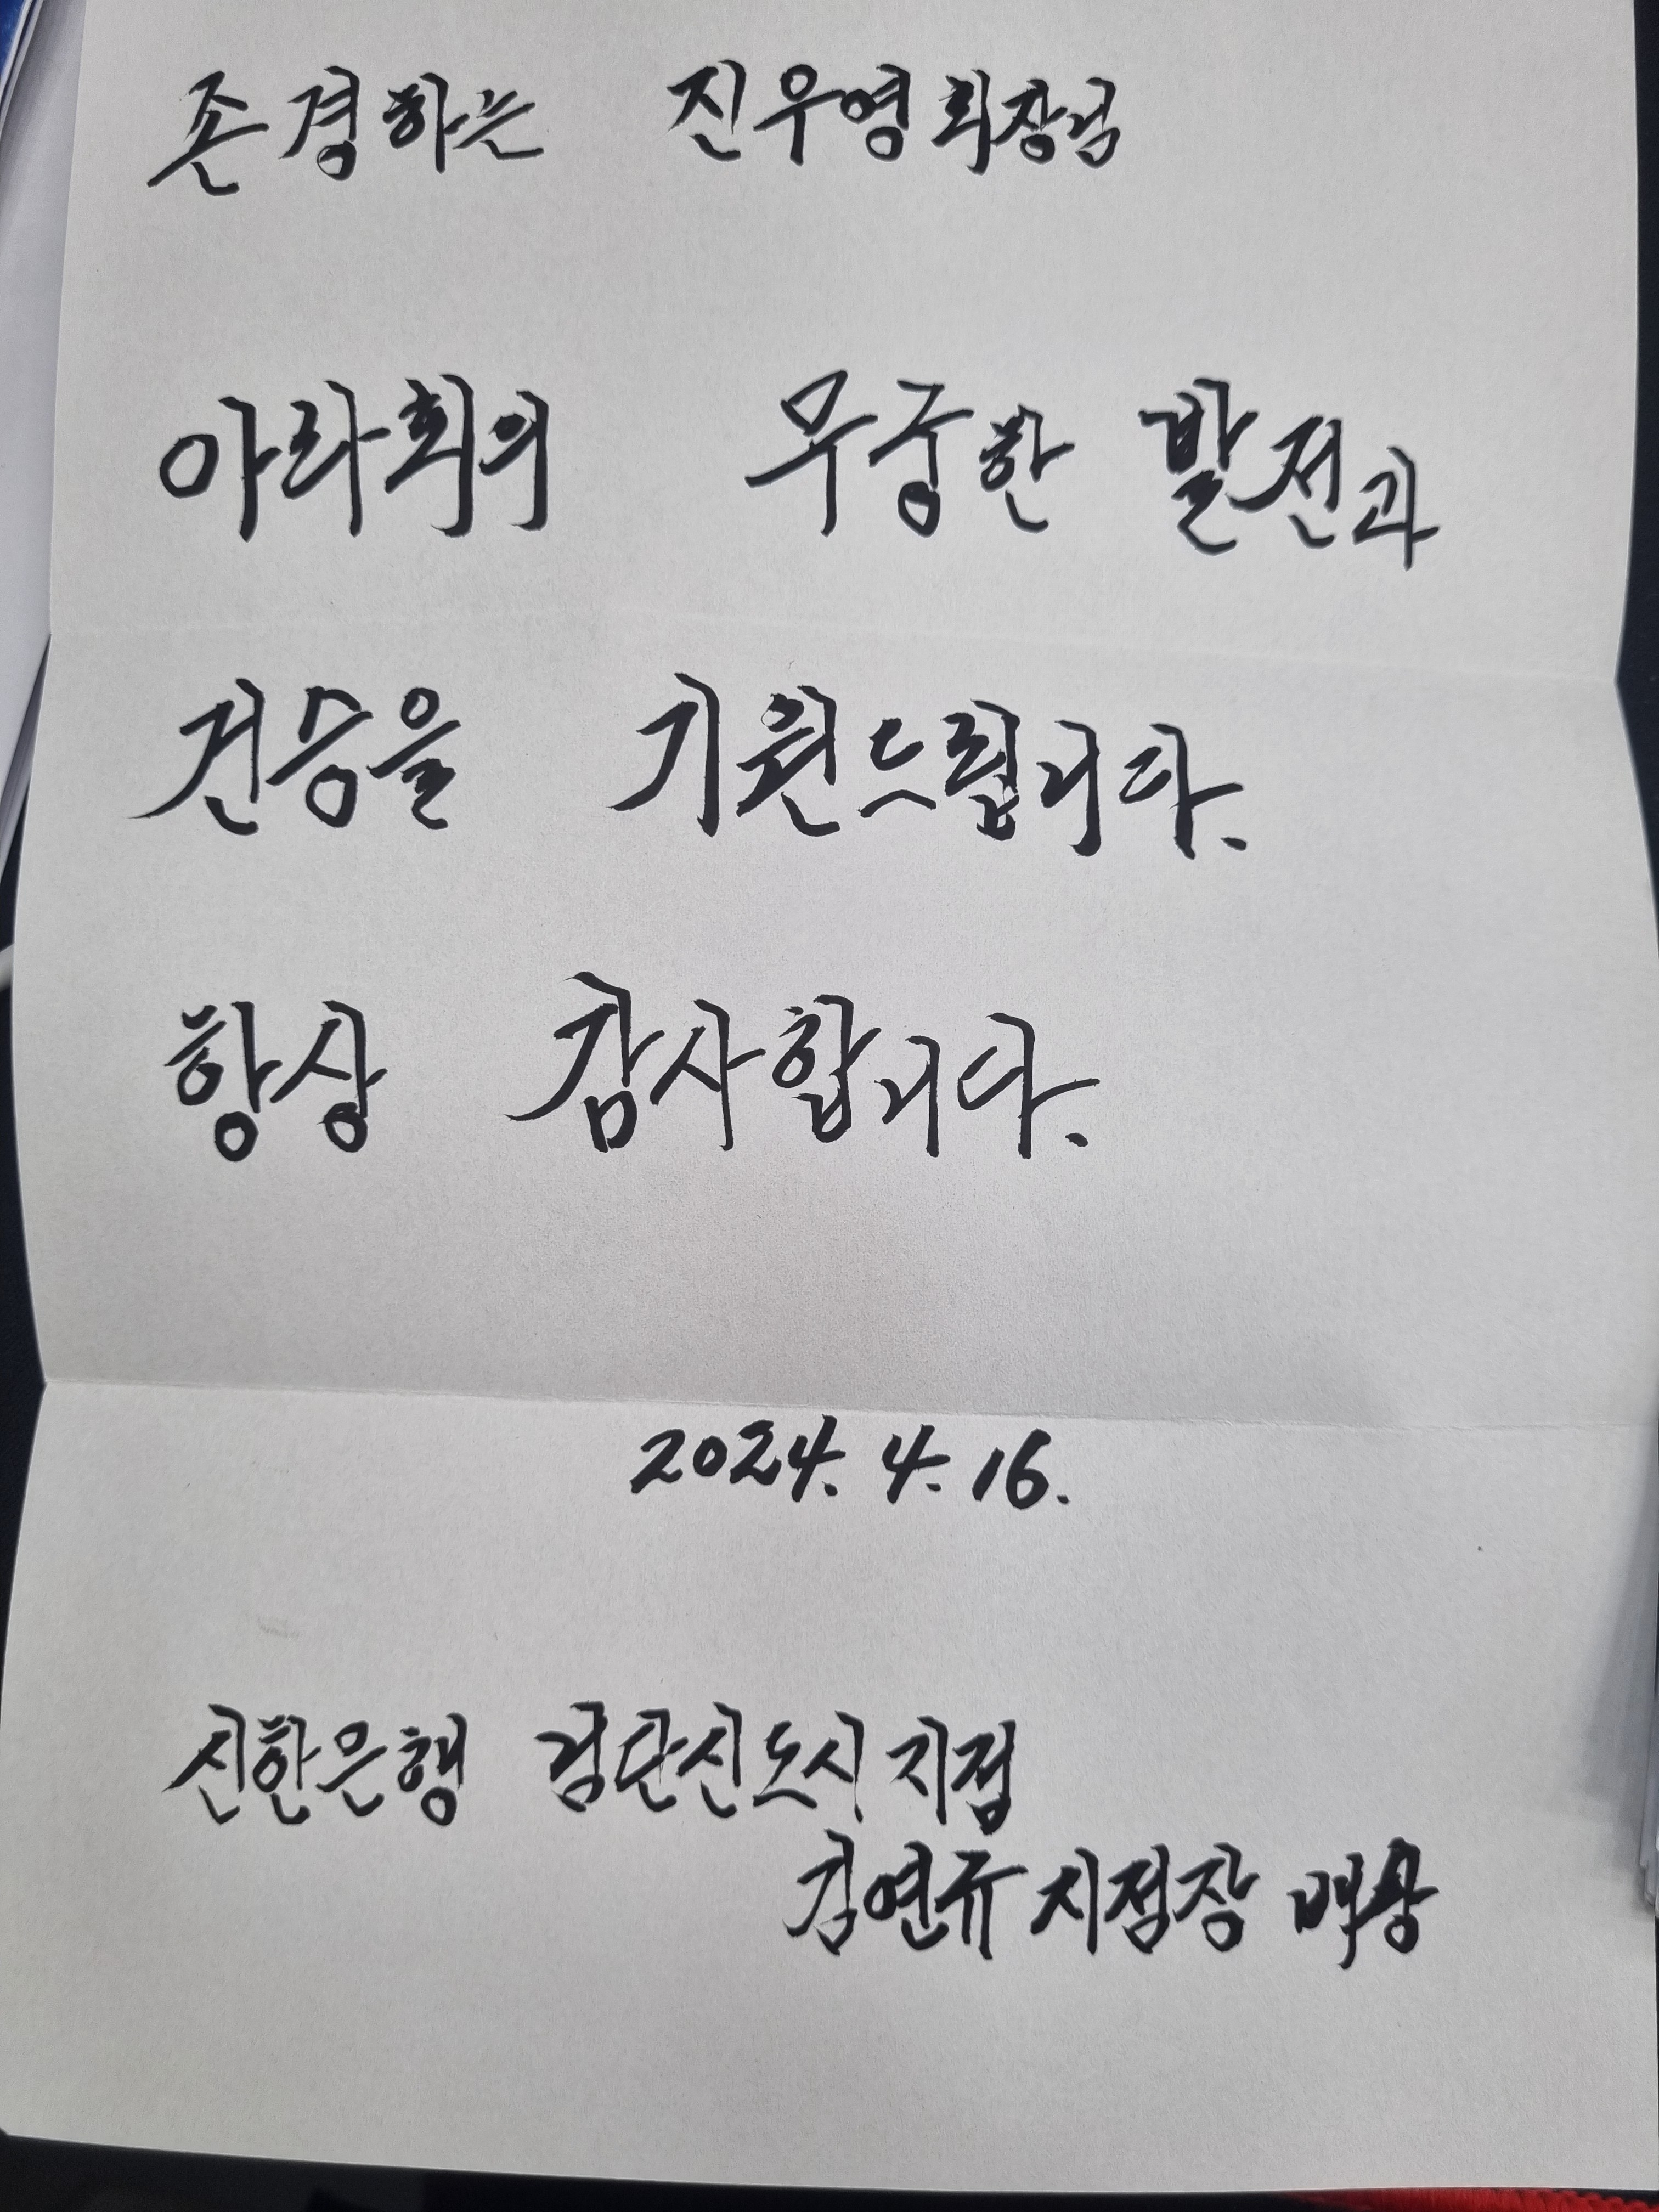 존경하는 진우영회장님
아라회의 무궁한 발전과
건승을 기원드립니다.
항상 감사합니다.
2024. 4. 16.
신한은행 검단신도시지점
김연규지점장 배상